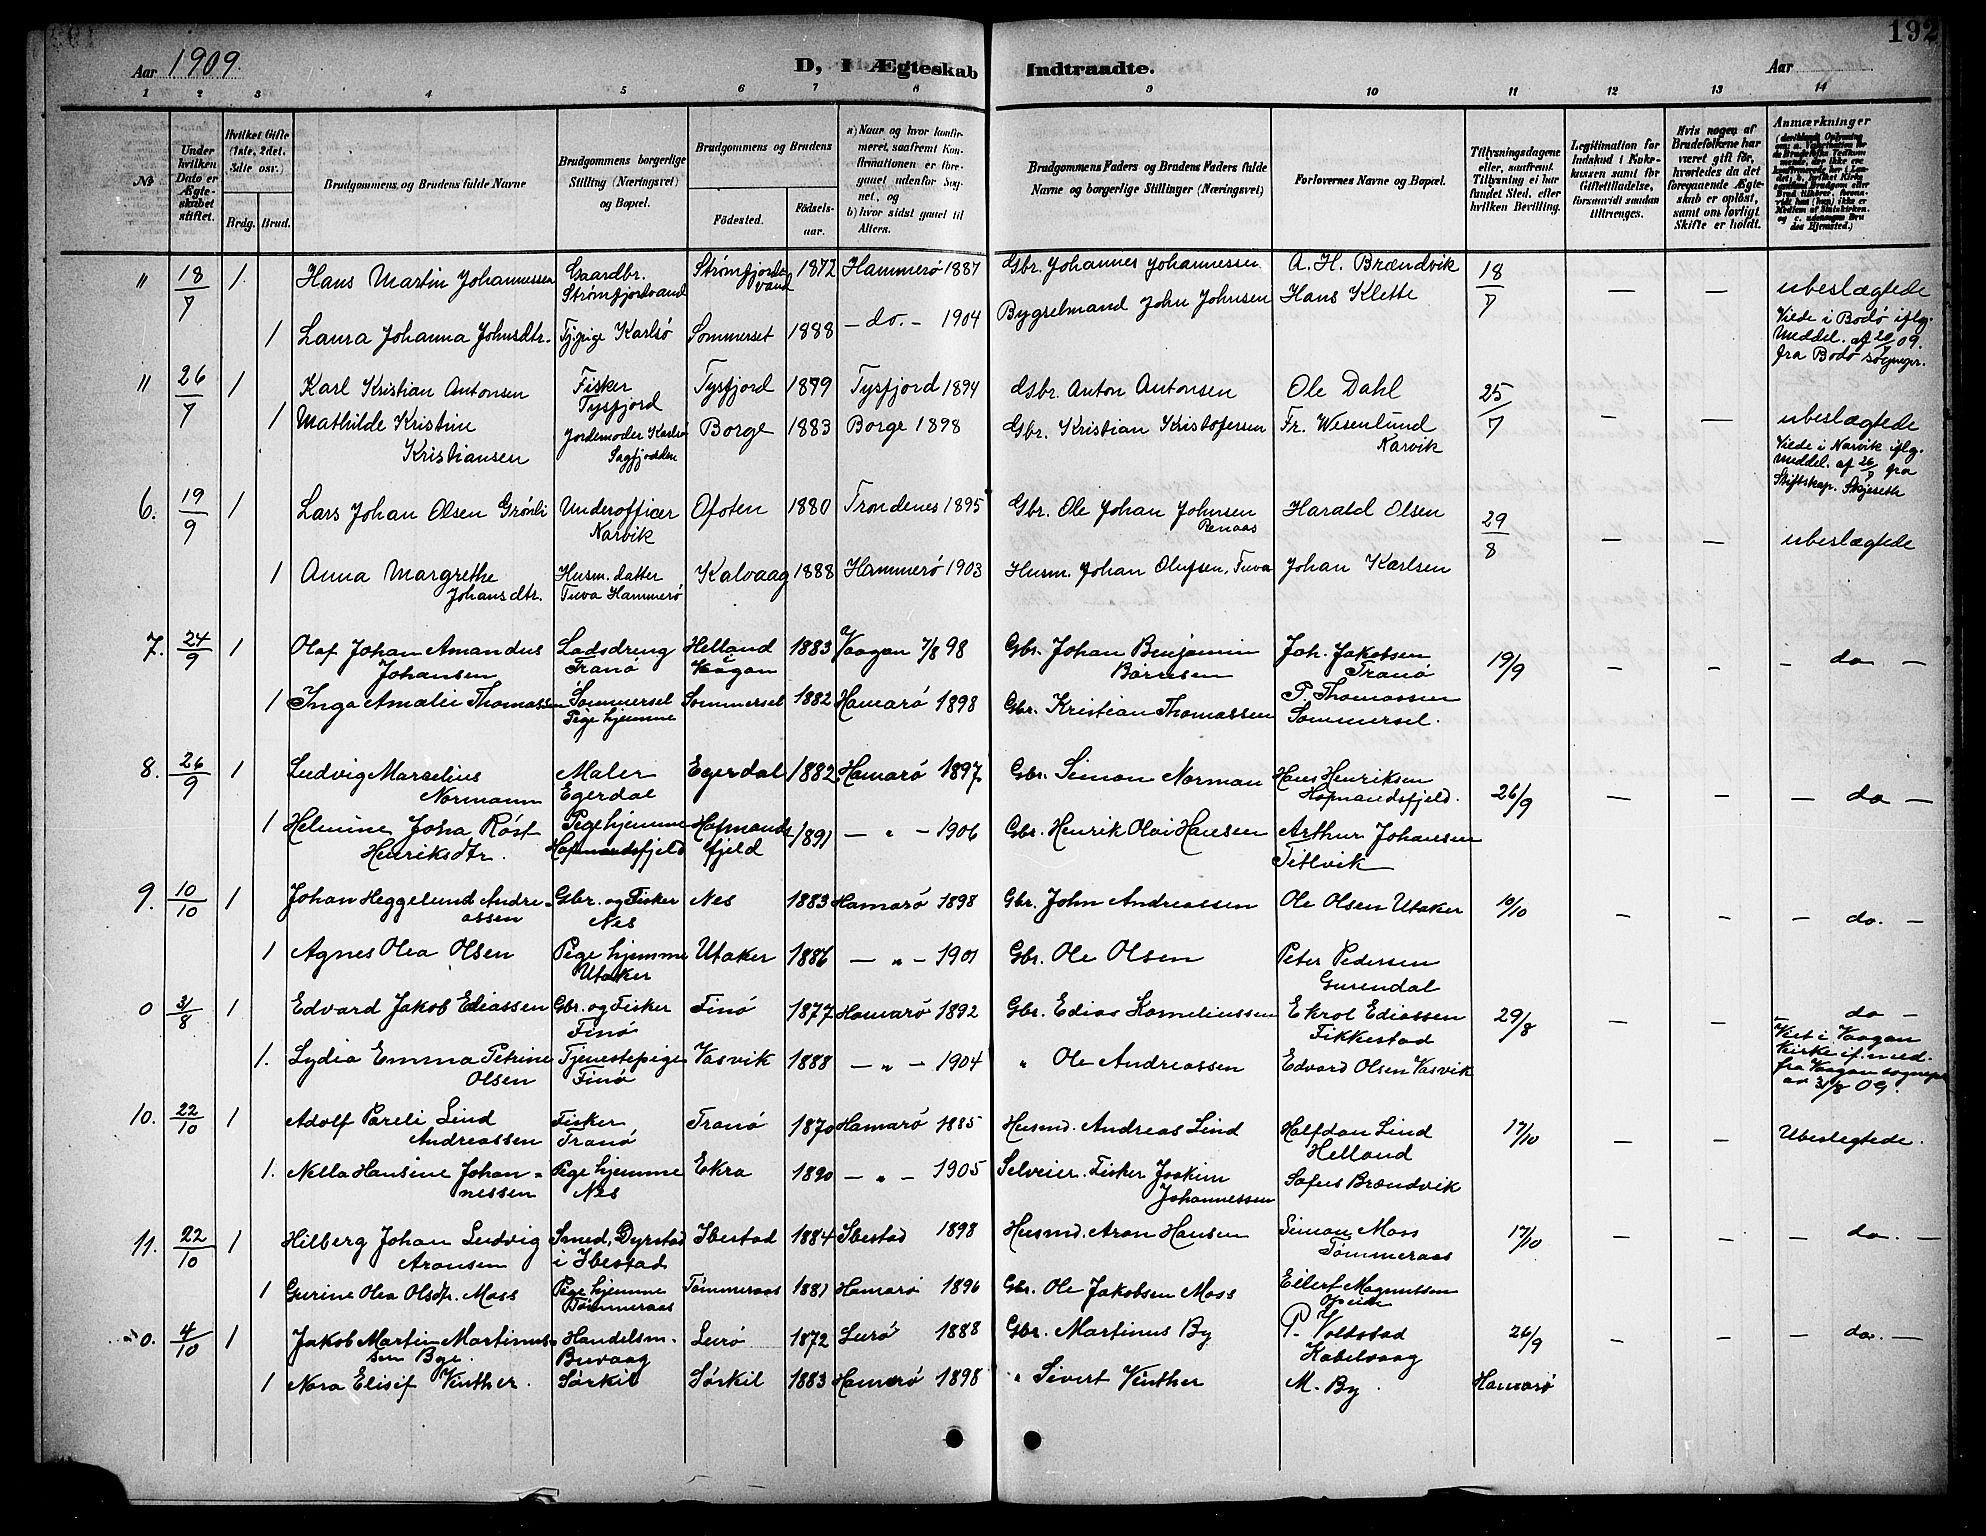 192
Aar 1909.
D, I Ægteskab Indtraadte.
Aar
1 2 3 4 5 6 7 8 9 10 11 12 13 14
No
Under hvilken Dato er Ægteskabet stiftet.
Hvilket Gifte (1ste, 2det, 3die osv.)
Brdg. Brud.
Brudgommens og Brudens fulde Navne
Brudgommens borgerlige Stilling (Næringsvei) og Bopæl.
Brudgommens og Brudens
Fødested.
Fødselsaar.
a) Naar og hvor konfirmeret, saafremt Konfirmationen er foregaaet udenfor Sognet, og
b) hvor sidst gaaet til Alters.
Brudgommens Faders og Brudens Faders fulde Navne og borgerlige Stillinger (Næringsvei)
Forlovernes Navne og Bopæl.
Tillysningsdagene eller, saafremt Tillysning ei har fundet Sted, efter hvilken Bevilling.
Legitimation for Indskud i Enkekassen samt for Giftetilladelse, forsaavidt saadan tiltrenges.
Hvis nogen af Brudefolkene har været gift før, hvorledes da det foregaaende Ægteskab er opløst, samt om lovligt Skifte er holdt.
Anmærkninger
" 18/7 1. Hans Martin Johannessen Gaardbr. Strømfjordvand Strømfjordvand 1872 Hammerø 1887 Gbr. Johannes Johannessen A. H. Brændvik 18/7 — — ubeslægtede
1 Laura Johanna Johnsdtr. Karlsø Sommerset 1888 — do. — 1904 Bygselmand John Johnsen Hans Klette Viede i Bodø iflg. Meddel. af 09. fra Bodø sognepr.
" 26/7 1 Karl Kristian Antonsen Fisker Tysfjord Tysfjord 1879 Tysfjord 1894 Gbr. Anton Antonsen Ole Dahl 25/7 — — ubeslægtede
1 Mathilde Kristine Kristiansen Jordemoder Karlsø Sagfjorden Borge 1883 Borge 1898 Gbr. Kristian Kristofersen Fr. Wesenlund Narvik Viede i Narvik iflg. Meddel. af fra Stiftskap.
6. 19/9 1 Lars Johan Olsen Grønli Underofficer Narvik Ofoten 1880 Trondenes 1895 Gbr. Ole Johan Johnsen Renaas Harald Olsen 29/8 — — ubeslægtede
1 Anna Margrethe Johansdtr. Husm. datter Tuva Hammerø Kalvaag 1888 Hammerø 1903 Husm. Johan Olufsen, Tuva Johan Karlsen
7. 24/9 1 Olaf Johan Amandus Johansen Ladsdreng Tranø Helland Vaagan 1883 Vaagan 7/8 98 Gbr. Johan Benjamin Børresen Joh. Jakobsen Tranø 19/9 — — — do —
1 Inga Amalie Thomassen Sommersel Pige hjemme Sommersel 1882 Hamarø 1898 Gbr. Kristian Thomassen P. Thomassen Sommersel.
8. 26/9 1 Ludvig Marselius Normann Maler Egerdal Egerdal 1882 Hamarø 1897 Gbr. Simon Norman Hans Henriksen Hofmandsfjeld. 26/9 — — — do —
1 Helmine Joha Røst Henriksdtr. Pige hjemme Hofmandsfjeld Hofmandsfjeld 1891 — " — 1906 Gbr. Henrik Olai Hansen Arthur Johansen Titlvik
9. 10/10 1 Johan Heggelund Andreassen Gbr. og Fisker Nes Nes 1883 Hamarø 1898 Gbr. John Andreassen Ole Olsen Utaker 10/10 — — — do. —
1 Agnes Olea Olsen Pige hjemme Utaker Utaker 1886 — " — 1901 Gbr. Ole Olsen Peter Pedersen Gurendal
0 31/8 1 Edvard Jakob Ediassen Gbr. og Fisker Finø Finø 1877 Hamarø 1892 Gbr. Edias Kornelius​sen Ekrol Ediassen Fikkestad 29/8 — — do —
1. Lydia Emma Petrine Olsen Tjenestepige Finø Vasvik 1888 — " — 1904 " Ole Andreassen Edvard Olsen Vasvik Viet i Vaagan Kirke if. med. fra Vaagan sognepr av 31/8 09.
10. 22/10 1 Adolf Pareli Lind Andreassen Fisker Tranø Tranø 1870 Hamarø 1885 Husmd. Andreas Lind Halfdan Lind Helland 17/10 — — Ubeslegtede.
1. Nella Hansine Johannessen Pige hjemme Nes Ekra 1890 — " — 1905 Selveier. Fisker Joakim Johannessen Sofus Brændvik
11. 22/10 1 Hilberg Johan Ludvig Aronsen Smed, Dyrstad i Ibestad Ibestad 1884 Ibestad 1898 Husmd. Aron Hansen Simon Moss Tømmeraas 17/10 — — — do. —
1 Gurine Olea Olsdtr. Moss Pige hjemme Tømmeraas Tømmeraas 1881 Hamarø 1896 Gbr. Ole Jakobsen Moss Eilert Magnussen Opeide
0. 4/10 1 Jakob Martin Martinussen Bye. Handelsm. Buvaag Lurø 1872 Lurø 1888 Gbr. Martinus By P. Voldstad Kabelvaag 26/9 — — — do. —
1 Nora Elisif Vinther. Sørkil Sørkil 1883 Hamarø 1898 " Sivert Vinther M. By. Hamarø